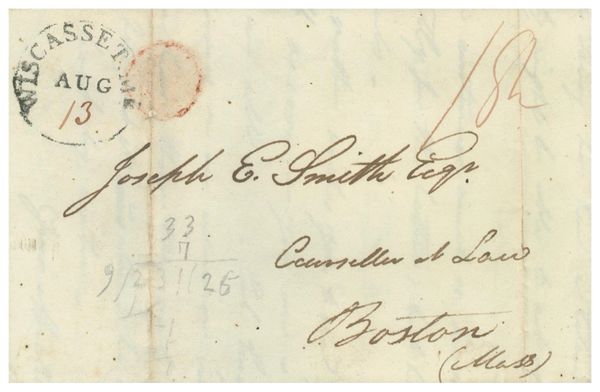 WISCASSET. Me
AUG
13
18¾
Joseph E. Smith Esqr.
33
7
9/231/25
Counseller at Law
Boston
(Mass)